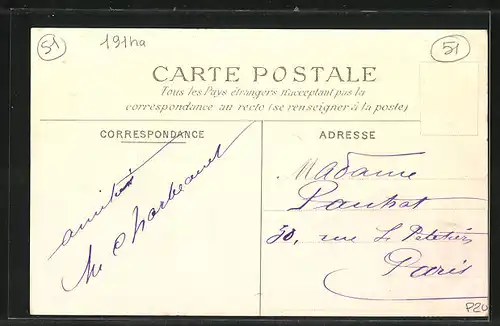 51
191ha
51
CARTE POSTALE
Tous les Pays étrangers n'acceptant pas la
correspondance au recto (se renseigner à la poste)
CORRESPONDANCE
ADRESSE
Madame
30, rue Le Peletier
Paris
P20